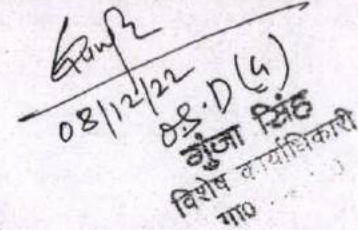 08/12/22
O.S.D (G)
गुंजा सिंह
विशेष कार्याधिकारी
गा०